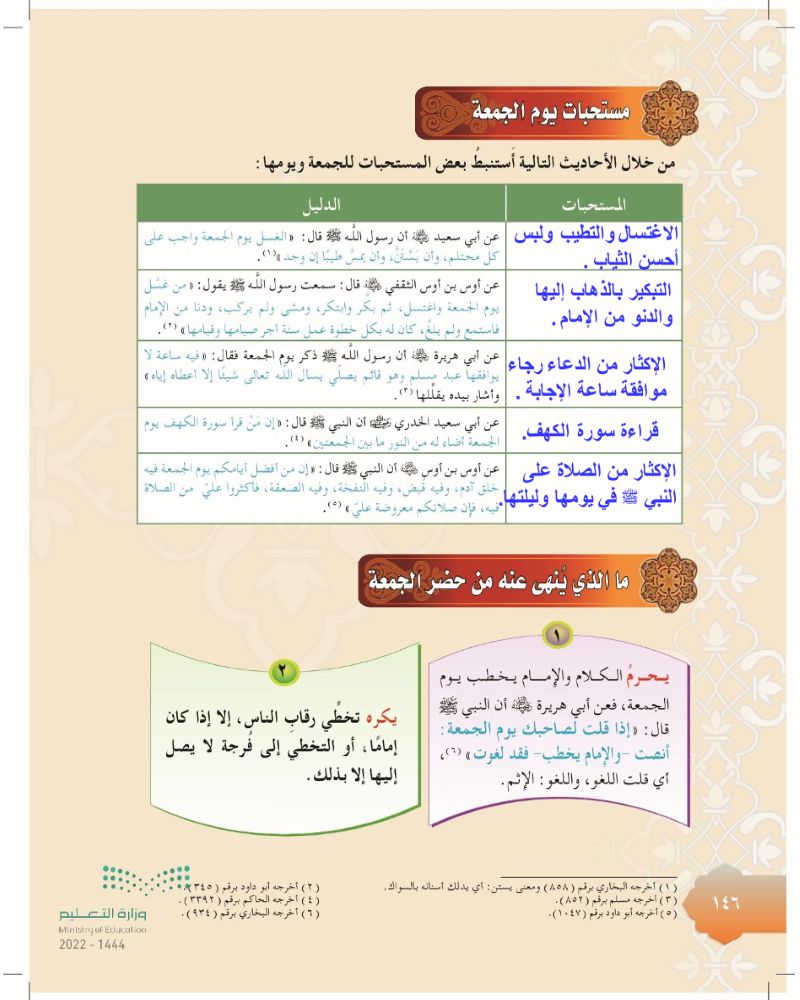 مستحبات يوم الجمعة
من خلال الأحاديث التالية أستنبطُ بعض المستحبات للجمعة ويومها :
المستحبات
الدليل
الاغتسال والتطيب ولبس
أحسن الثياب .
عن أبي سعيد ﷺ أن رسول اللَّـه ﷺ قال: «الغسل يوم الجمعة واجب على
كل محتلم، وأن يَسْتَنَّ، وأن يمسَّ طيبًا إن وجد»(١).
التبكير بالذهاب إليها
والدنو من الإمام .
عن أوس بن أوس الثقفي قال: سمعت رسول اللَّـه ﷺ يقول: «من غسَّل
يوم الجمعة واغتسل، ثم بكَّر وابتكر، ومشى ولم يركب، ودنا من الإمام
فاستمع ولم يلغُ، كان له بكل خطوة عمل سنة أجر صيامها وقيامها»(٢).
الإكثار من الدعاء رجاء
موافقة ساعة الإجابة .
عن أبي هريرة أن رسول اللَّـه ﷺ ذكر يوم الجمعة فقال: «فيه ساعة لا
يوافقها عبد مسلم وهو قائم يصلِّي يسأل اللـه تعالى شيئًا إلا أعطاه إياه»
وأشار بيده يقلِّلها(٣).
قراءة سورة الكهف.
عن أبي سعيد الخدري أن النبي ﷺ قال: «إن مَنْ قرأ سورة الكهف يوم
الجمعة أضاء له من النور ما بين الجمعتين»(٤).
الإكثار من الصلاة على
النبي ﷺ في يومها وليلتها.
عن أوس بن أوس أن النبي ﷺ قال: «إن من أفضل أيامكم يوم الجمعة فيه
خلق آدم، وفيه قُبض، وفيه النفخة، وفيه الصعقة، فأكثروا عليّ من الصلاة
فيه، فإن صلاتكم معروضة عليّ»(٥).
ما الذي يُنهى عنه من حضر الجمعة
١
يـحـرمُ الـكـلام والإمـــام يـخـطـب يـوم
الجمعة، فعن أبي هريرة أن النبي ﷺ
قال: «إذا قلت لصاحبك يوم الجمعة:
أنصت -والإمام يخطب- فقد لغوت»(٦)،
أي قلت اللغو، واللغو: الإثم.
٢
يكره تخطِّي رقابِ الناس، إلا إذا كان
إمامًا، أو التخطي إلى فُرجة لا يصل
إليها إلا بذلك.
(١) أخرجه البخاري برقم (٨٥٨) ومعنى يستن: أي يدلك أسنانه بالسواك.
(٢) أخرجه أبو داود برقم (٣٤٥).
(٣) أخرجه مسلم برقم (٨٥٢).
(٤) أخرجه الحاكم برقم (٣٣٩٢).
(٥) أخرجه أبو داود برقم (١٠٤٧).
(٦) أخرجه البخاري برقم (٩٣٤).
١٤٦
وزارة التـعـليم
Ministry of Education
2022 - 1444